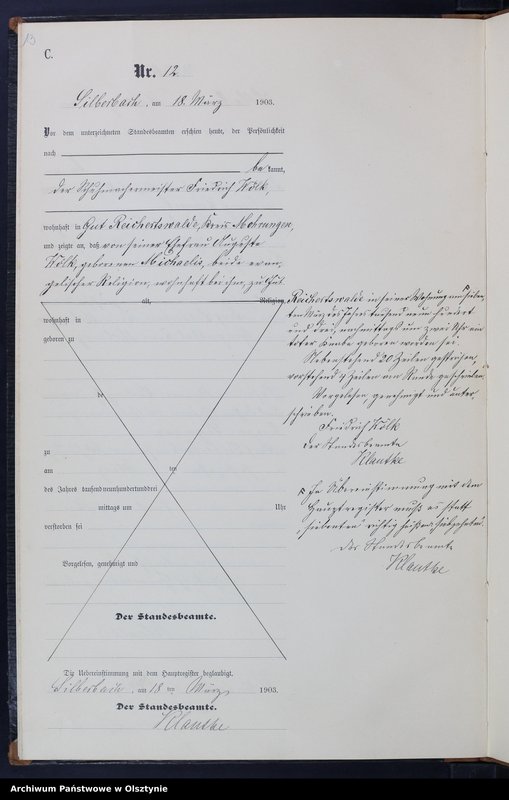 13
C.
Nr. 12.
Silberbach, am 18. März 1903.
Vor dem unterzeichneten Standesbeamten erschien heute, der Persönlichkeit
nach
be kannt,
der Schuhmachermeister Friedrich Kölk,
wohnhaft in Gut Reichertswalde, Kreis Mohrungen,
und zeigte an, daß von seiner Ehefrau Auguste
Kölk, geborenen Michaelis, beide evan,
gelischer Religion, wohnhaft bei ihm, zu Gut
alt, Religion,
wohnhaft in
geboren zu
de
zu
am ten
des Jahres tausendneunhundertunddrei
mittags um Uhr
verstorben sei
Vorgelesen, genehmigt und
Der Standesbeamte.
Die Uebereinstimmung mit dem Hauptregister beglaubigt.
Silberbach, am 18 ten März 1903.
Der Standesbeamte.
Klautke
Reichertswalde in seiner Wohnung am sieben,
ten März des Jahres tausend neun hundert
und drei, nachmittags um zwei Uhr ein
toter Knabe geboren worden sei.
Nebenstehend 20 Zeilen gestrichen,
vorstehend 4 Zeilen am Rande geschrieben.
Vorgelesen, genehmigt und unter,
schrieben.
Friedrich Kölk
Der Standesbeamte
Klautke
In Übereinstimmung mit dem
Hauptregister muß es statt
"siebenten" richtig heißen "siebzehnten".
Der Standesbeamte
Klautke
Archiwum Państwowe w Olsztynie